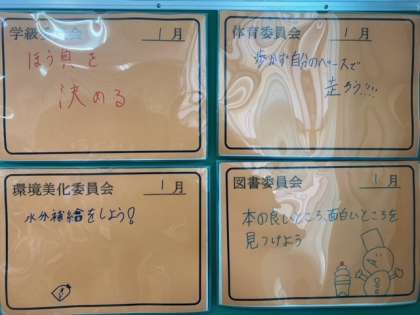 学級 会
1月
ほう具を
決める
体育委員会
1月
歩かず自分のペースで
走ろう!!!
環境美化委員会
1月
水分補給をしよう!
図書委員会
1月
本の良いところ、面白いところを
見つけよう